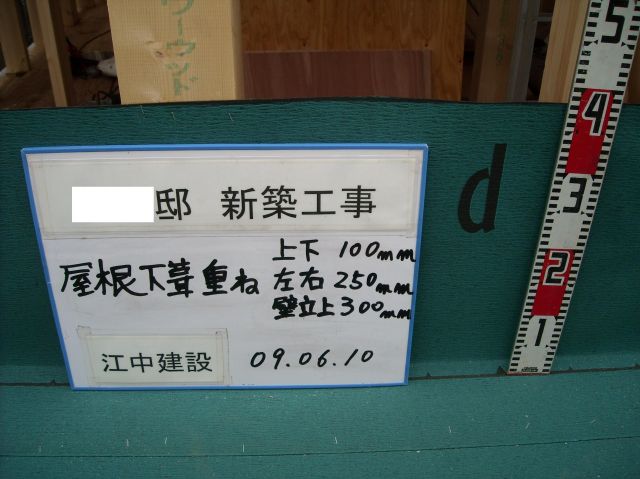 ワーウッド
邸 新築工事
屋根下葺重ね
上下 100mm
左右 250mm
壁立上300mm
江中建設
09.06.10
d
5
4
3
2
1